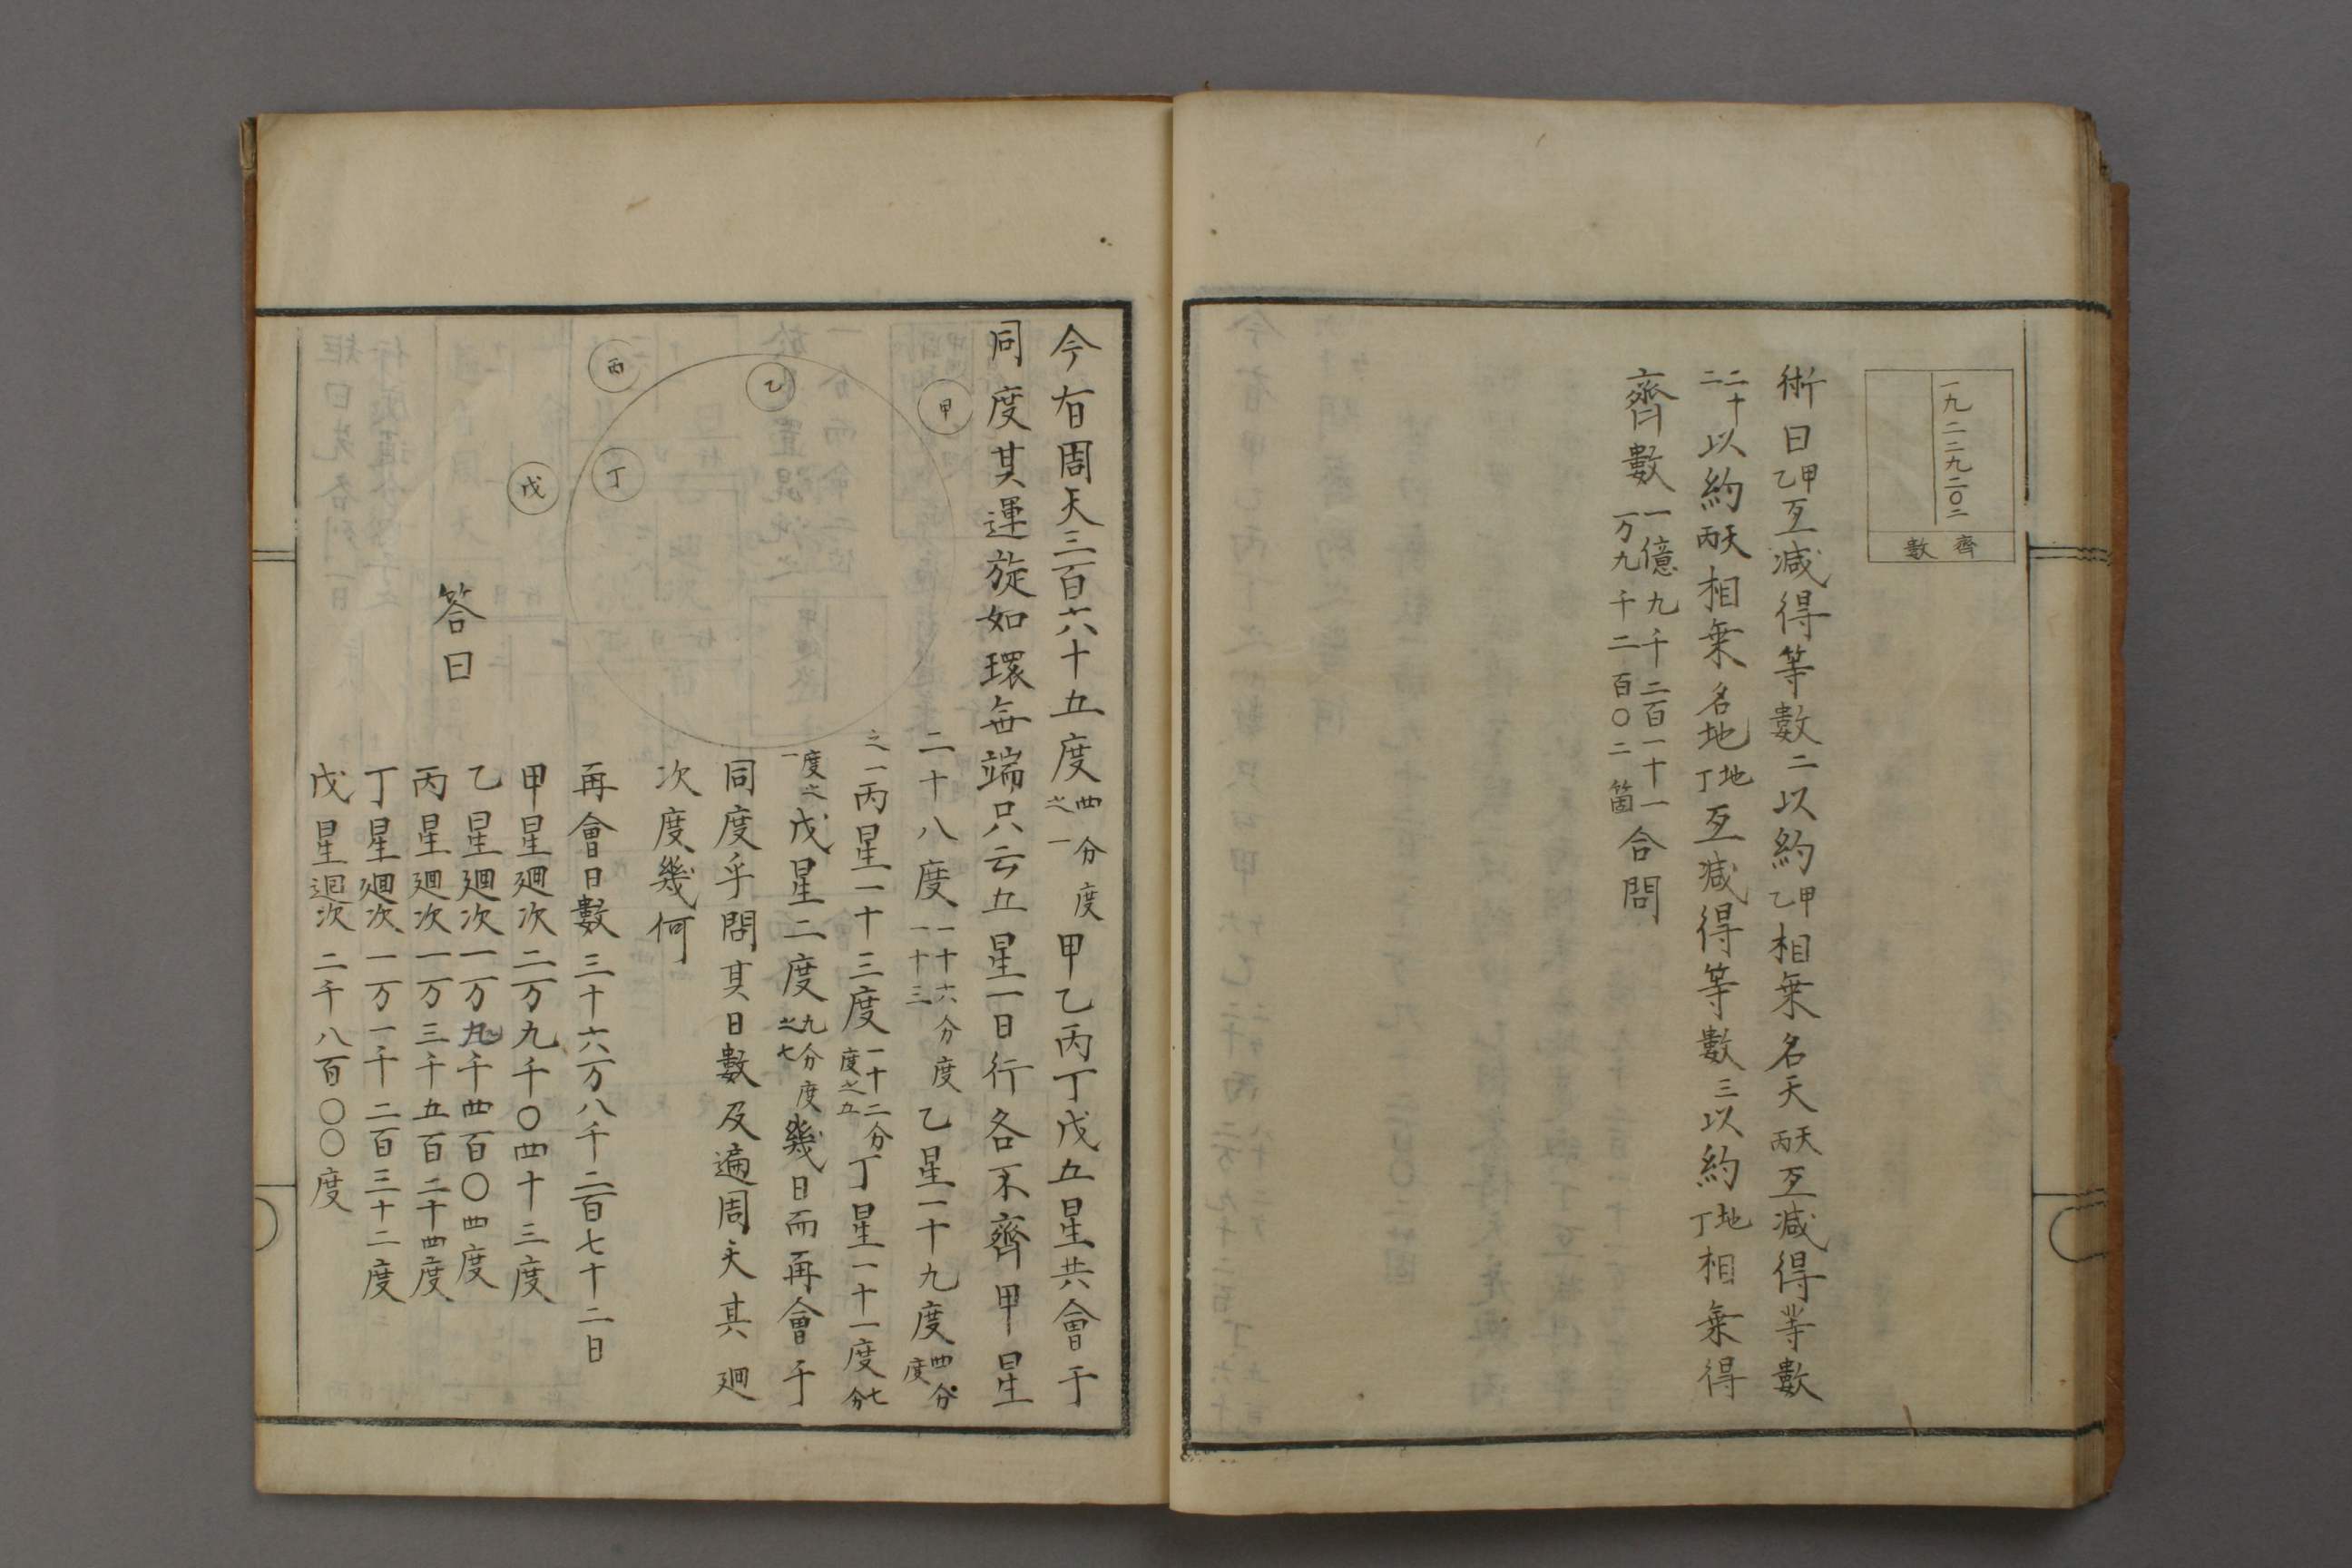 一九二二九二〇二
齊數
術曰甲乙互减得等數二以約甲乙相乗名天天丙互减得等數
二十二以約天丙相乗名地地丁互减得等數三以約地丁相乗得
齊數一億九千二百二十一万九千二百〇二箇合問
今有周天三百六十五度四分度之一甲乙丙丁戊五星共會于
同度其運旋如環無端只云五星一日行各不齊甲星
二十八度一十六分度一十三乙星一十九度四分度
之一丙星一十三度一十二分度之五丁星一十一度七分
度之一戊星二度九分度之七幾日而再會于
同度乎問其日數及遍周天其廻
次度幾何
甲
乙
丙
丁
戊
答曰
再會日數三十六万八千二百七十二日
甲星廻次二万九千〇四十三度
乙星廻次一万九千四百〇四度
丙星廻次一万三千五百二十四度
丁星廻次一万一千二百三十二度
戊星廻次二千八百〇〇度